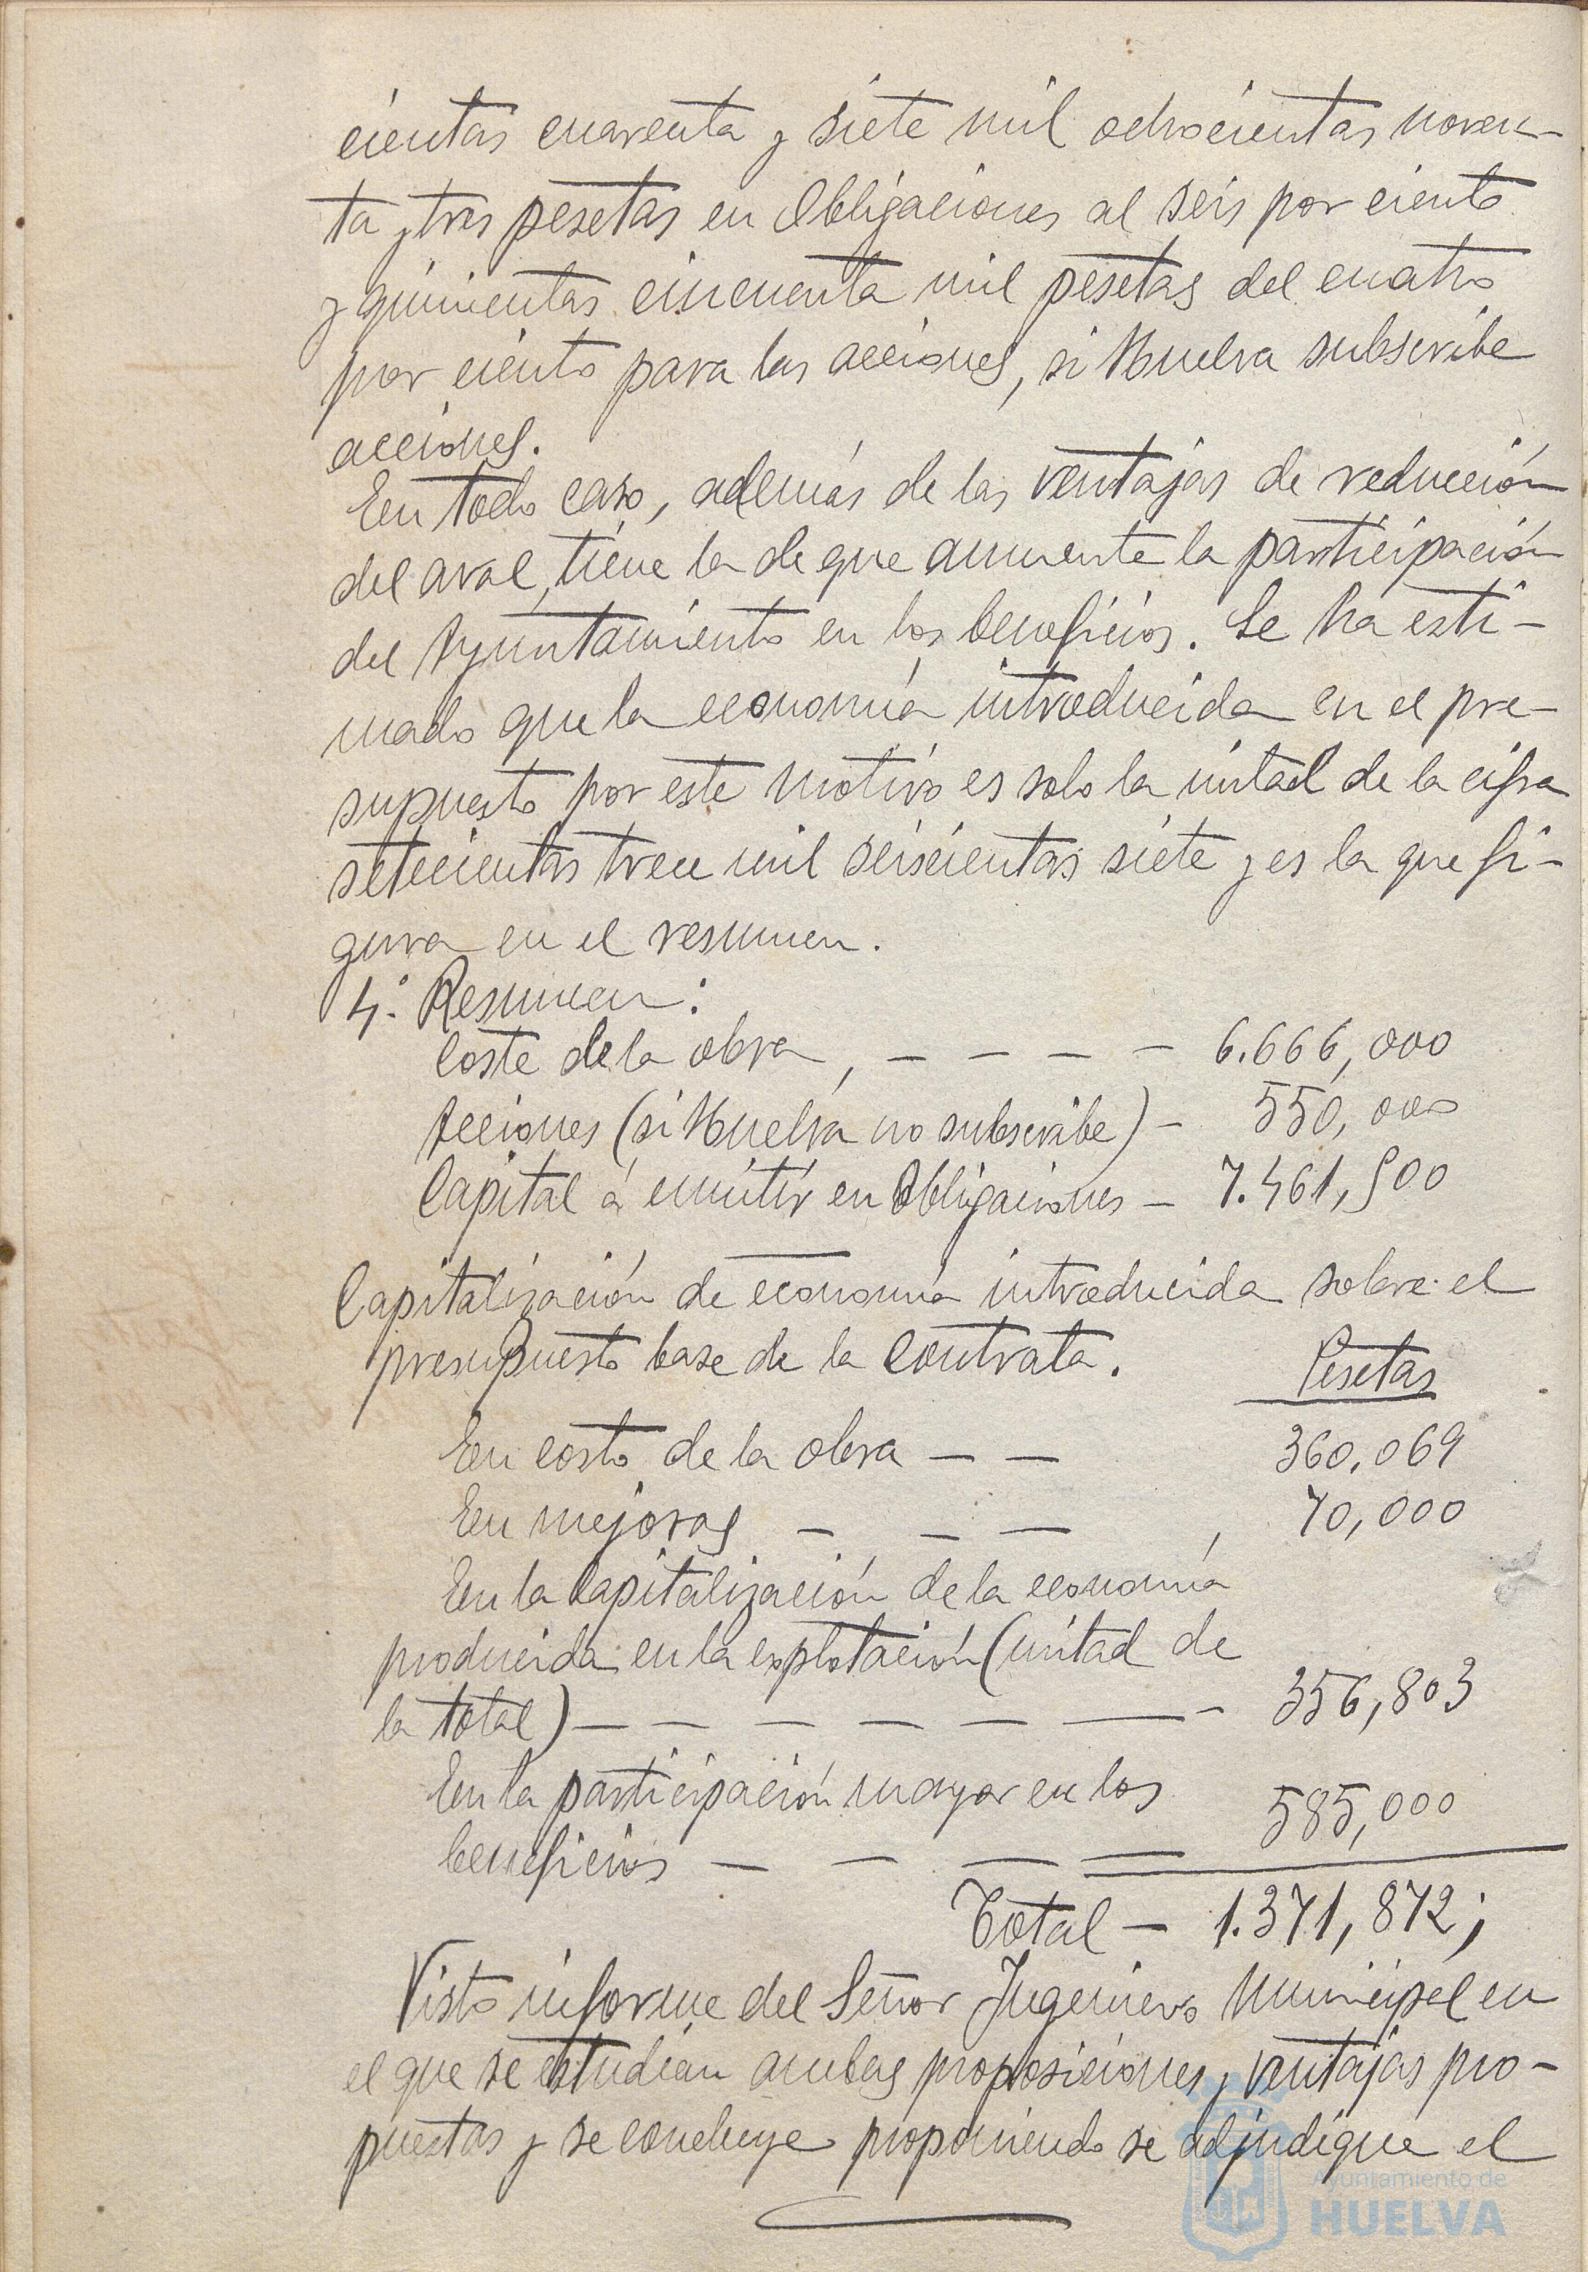 cientas cuarenta y siete mil ochocientas noven-
ta y tres pesetas en Obligaciones al seis por ciento
y quinientas cincuenta mil pesetas del cuatro
por ciento para las acciones, si Huelva subscribe
acciones.
En todo caso, además de las ventajas de reducción
del aval, tiene la de que aumente la participación
del Ayuntamiento en los beneficios. Se ha esti-
mado que la economía introducida en el pre-
supuesto por este motivo es solo la mitad de la cifra
setecientas trece mil seiscientas siete y es la que fi-
gura en el resumen.
4.° Resumen:
Coste de la obra, — — — — 6.666,000
Acciones (si Huelva no subscribe) — 550,000
Capital á emitir en Obligaciones — 7.461,500
Capitalización de economía introducida sobre el
presupuesto base de la contrata.
Pesetas
En costo de la obra — — 360.069
En mejoras — — — , 70,000
En la Capitalización de la economía
producida en la explotación (mitad de
la total) — — — — — — - 356,803
En la participación mayor en los
beneficios — — — — 585,000
Total — 1.371,872;
Visto informe del Señor Ingeniero Municipal en
el que se estudian ambas proposiciones y ventajas pro-
puestas y se concluye proponiendo se adjudique el
Ayuntamiento de
HUELVA